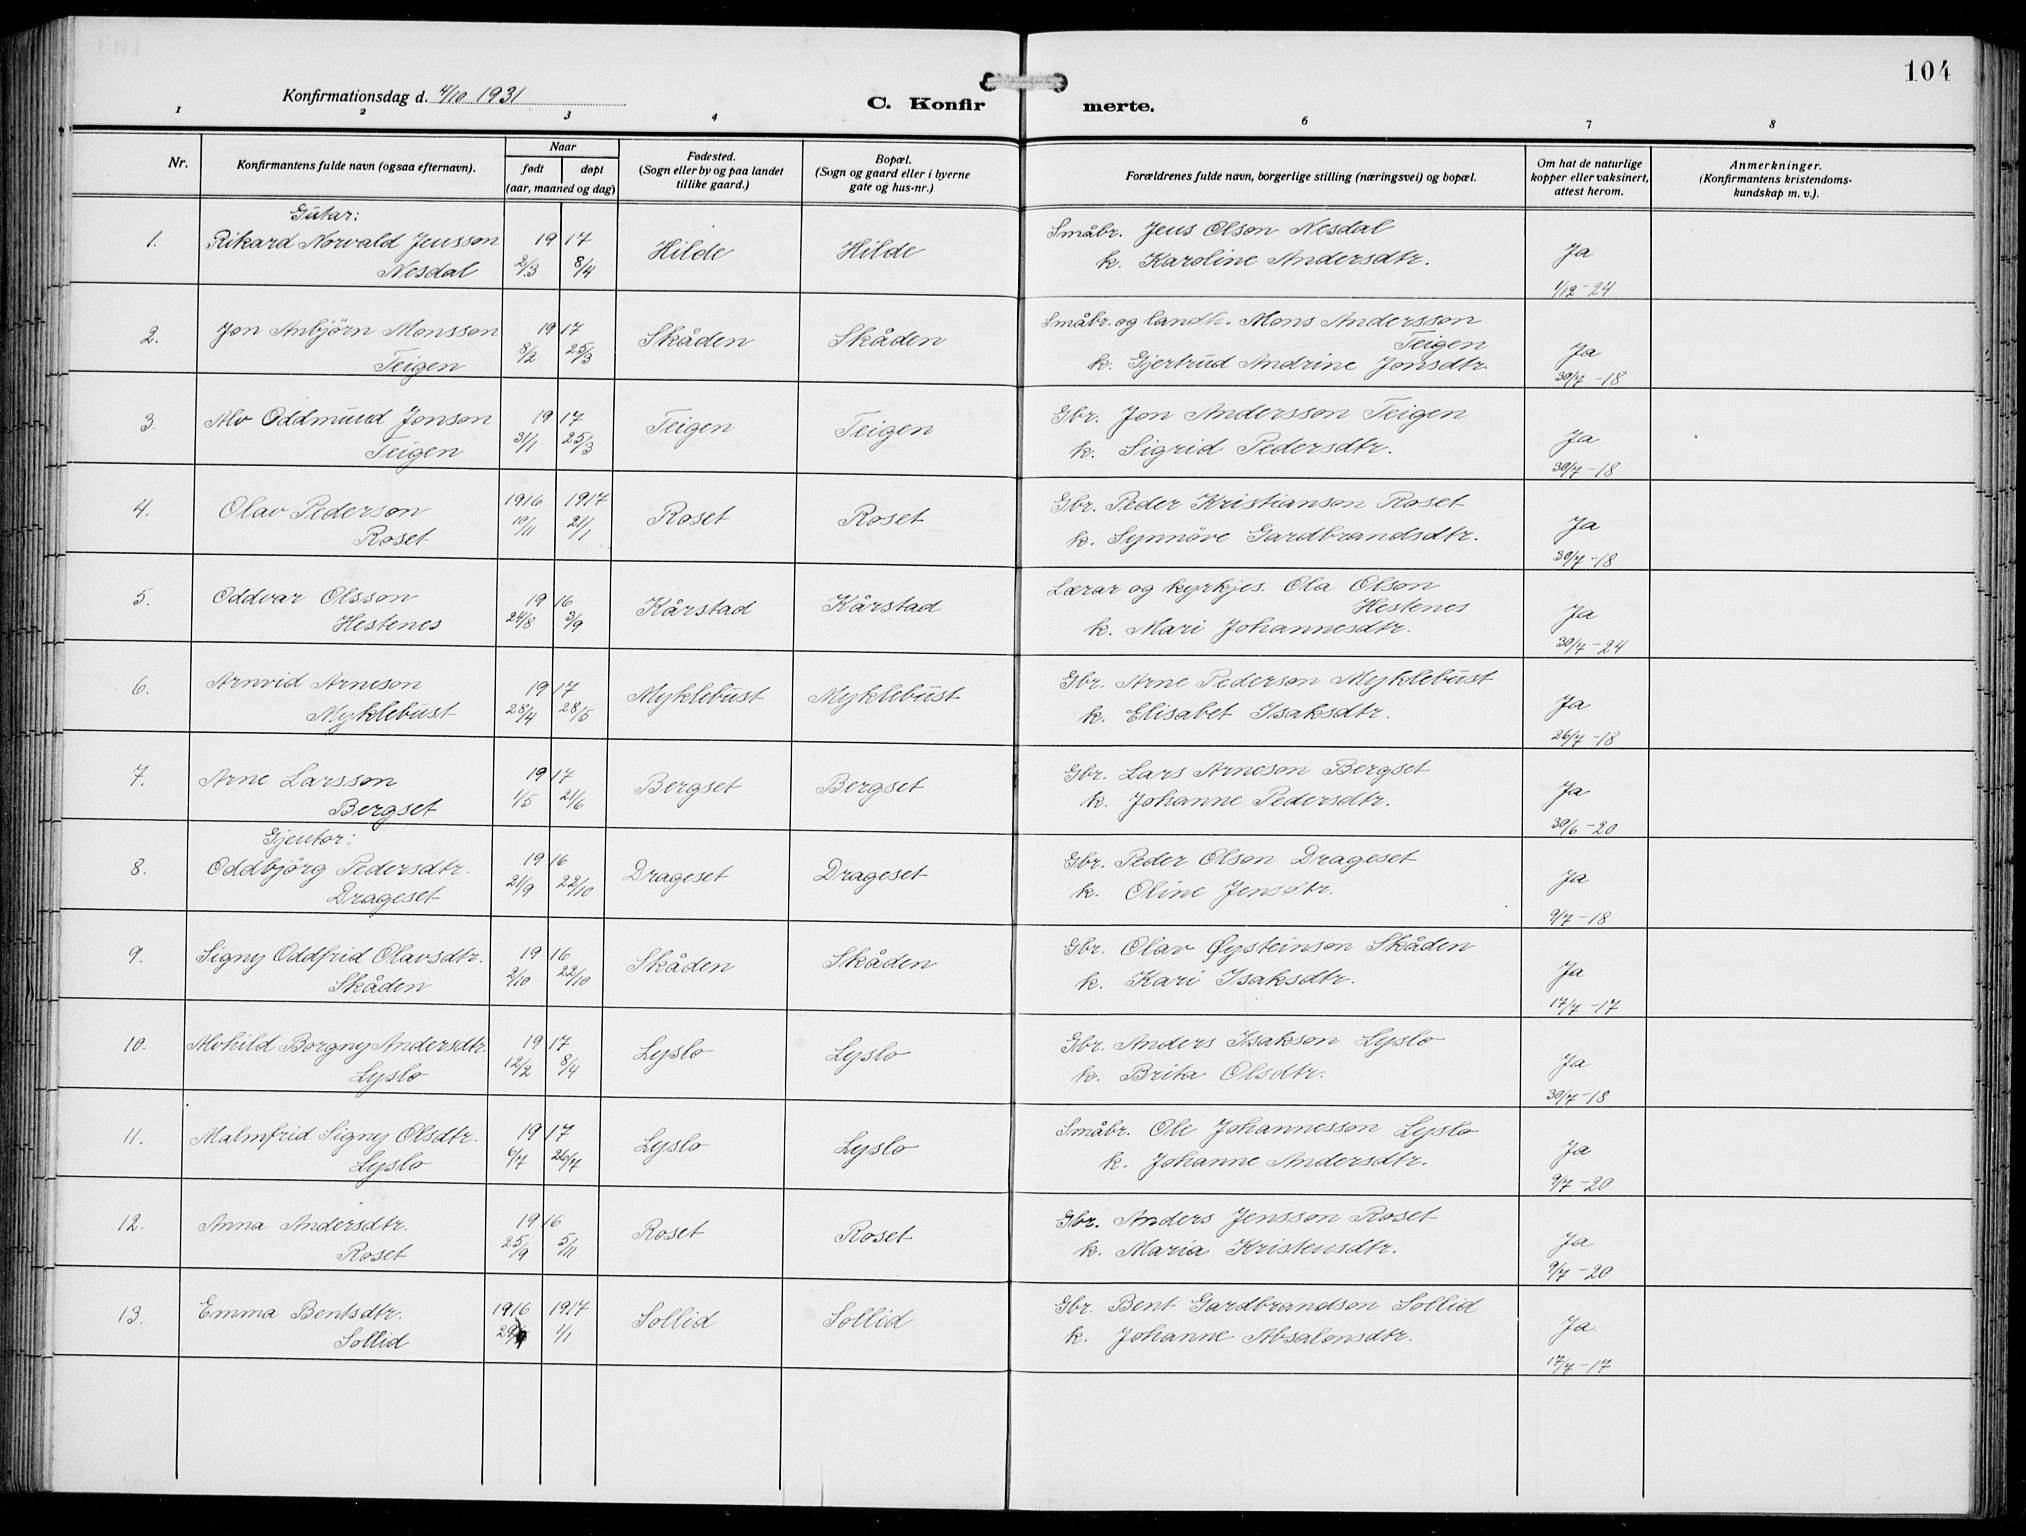 104
Konfirmationsdag d. 4/10 1931
C. Konfir merte.
1 2 3 4 6 7 8
Nr. Konfirmantens fulde navn (ogsaa efternavn). Naar født døpt (aar, maaned og dag) Fødested. (Sogn eller by og paa landet tillike gaard.) Bopæl. (Sogn og gaard eller i byerne gate og hus-nr.) Forældrenes fulde navn, borgerlige stilling (næringsvei) og bopæl. Om hat de naturlige kopper eller vaksinert, attest herom. Anmerkninger. (Konfirmantens kristendoms-kundskap m. v.).
Gutar:
1. Rikard Norvald Jensson 19 17 Hilde Hilde Småbr. Jens Olson Nesdal Ja
Nesdal 2/3 8/4 k. Karoline Andersdtr. 1/12-24
2. Jon Anbjörn Monsson 19 17 Skåden Skåden Småbr. og landh. Mons Andersson
Teigen 8/2 25/3 Teigen Ja
k. Gjertrud Andrine Jonsdtr. 30/7-18
3. Alv Oddmund Jonson 19 17 Teigen Teigen Gbr. Jon Andersson Teigen Ja
Teigen 31/1 25/3 k. Sigrid Pedersdtr. 30/7-18
4. Olav Pederson 1916 1917 Roset Roset Gbr. Peder Kristianson Roset Ja
Roset 10/11 21/1 k. Synnöve Gardbrandsdtr. 30/7-18
5. Oddvar Olsson 19 16 Kårstad Kårstad Lærar og kyrkjes. Ola Olson
Hestenes 24/8 3/9 Hestenes Ja
k. Mari Johannesdtr. 30/7-24
6. Arnvid Arneson 19 17 Myklebust Myklebust Gbr. Arne Pederson Myklebust Ja
Myklebust 28/4 28/5 k. Elisabet Isaksdtr. 26/7-18
7. Arne Larsson 19 17 Bergset Bergset Gbr. Lars Arneson Bergset Ja
Bergset 1/5 21/6 k. Johanne Pedersdtr. 30/6-20
Gjentor:
8. Oddbjörg Pedersdtr. 19 16 Drageset Drageset Gbr. Peder Olson Drageset Ja
Drageset 21/9 22/10 k. Oline Jensdtr. 9/7-18
9. Signy Oddfrid Olavsdtr. 19 16 Skåden Skåden Gbr. Olav Øysteinson Skåden Ja
Skåden 2/10 22/10 k. Kari Isaksdtr. 17/7-17
10. Alvhild Borgny Andersdtr. 19 17 Lyslo Lyslo Gbr. Anders Isakson Lyslo Ja
Lyslo 12/2 8/4 k. Brita Olsdtr. 30/7-18
11. Malmfrid Signy Olsdtr. 19 17 Lyslo Lyslo Småbr. Ole Johannesson Lyslo Ja
Lyslo 6/7 26/7 k. Johanne Andersdtr. 9/7-20
12. Anna Andersdtr. 19 16 Roset Roset Gbr. Anders Jensson Roset Ja
Roset 25/9 5/11 k. Maria Kristensdtr. 9/7-20
13. Emma Bentsdtr. 1916 1917 Sollid Sollid Gbr. Bent Gardbrandson Sollid Ja.
Sollid 1/1 k. Johanne Absalonsdtr. 17/7-17